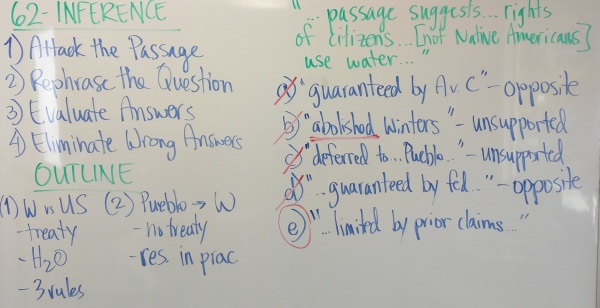 62- INFERENCE
1) Attack the Passage
2) Rephrase the Question
3) Evaluate Answers
4) Eliminate Wrong Answers
OUTLINE
(1) W vs US
- treaty
- H2O
- 3 rules
(2) Pueblo → W
- no treaty
- res. in prac
"... passage suggests... rights
of citizens... [not Native Americans]
use water..."
a) "guaranteed by Av. C" - opposite
b) "abolished Winters" - unsupported
c) "deferred to... Pueblo..." - unsupported
d) "...guaranteed by fed..." - opposite
e) "...limited by prior claims..."